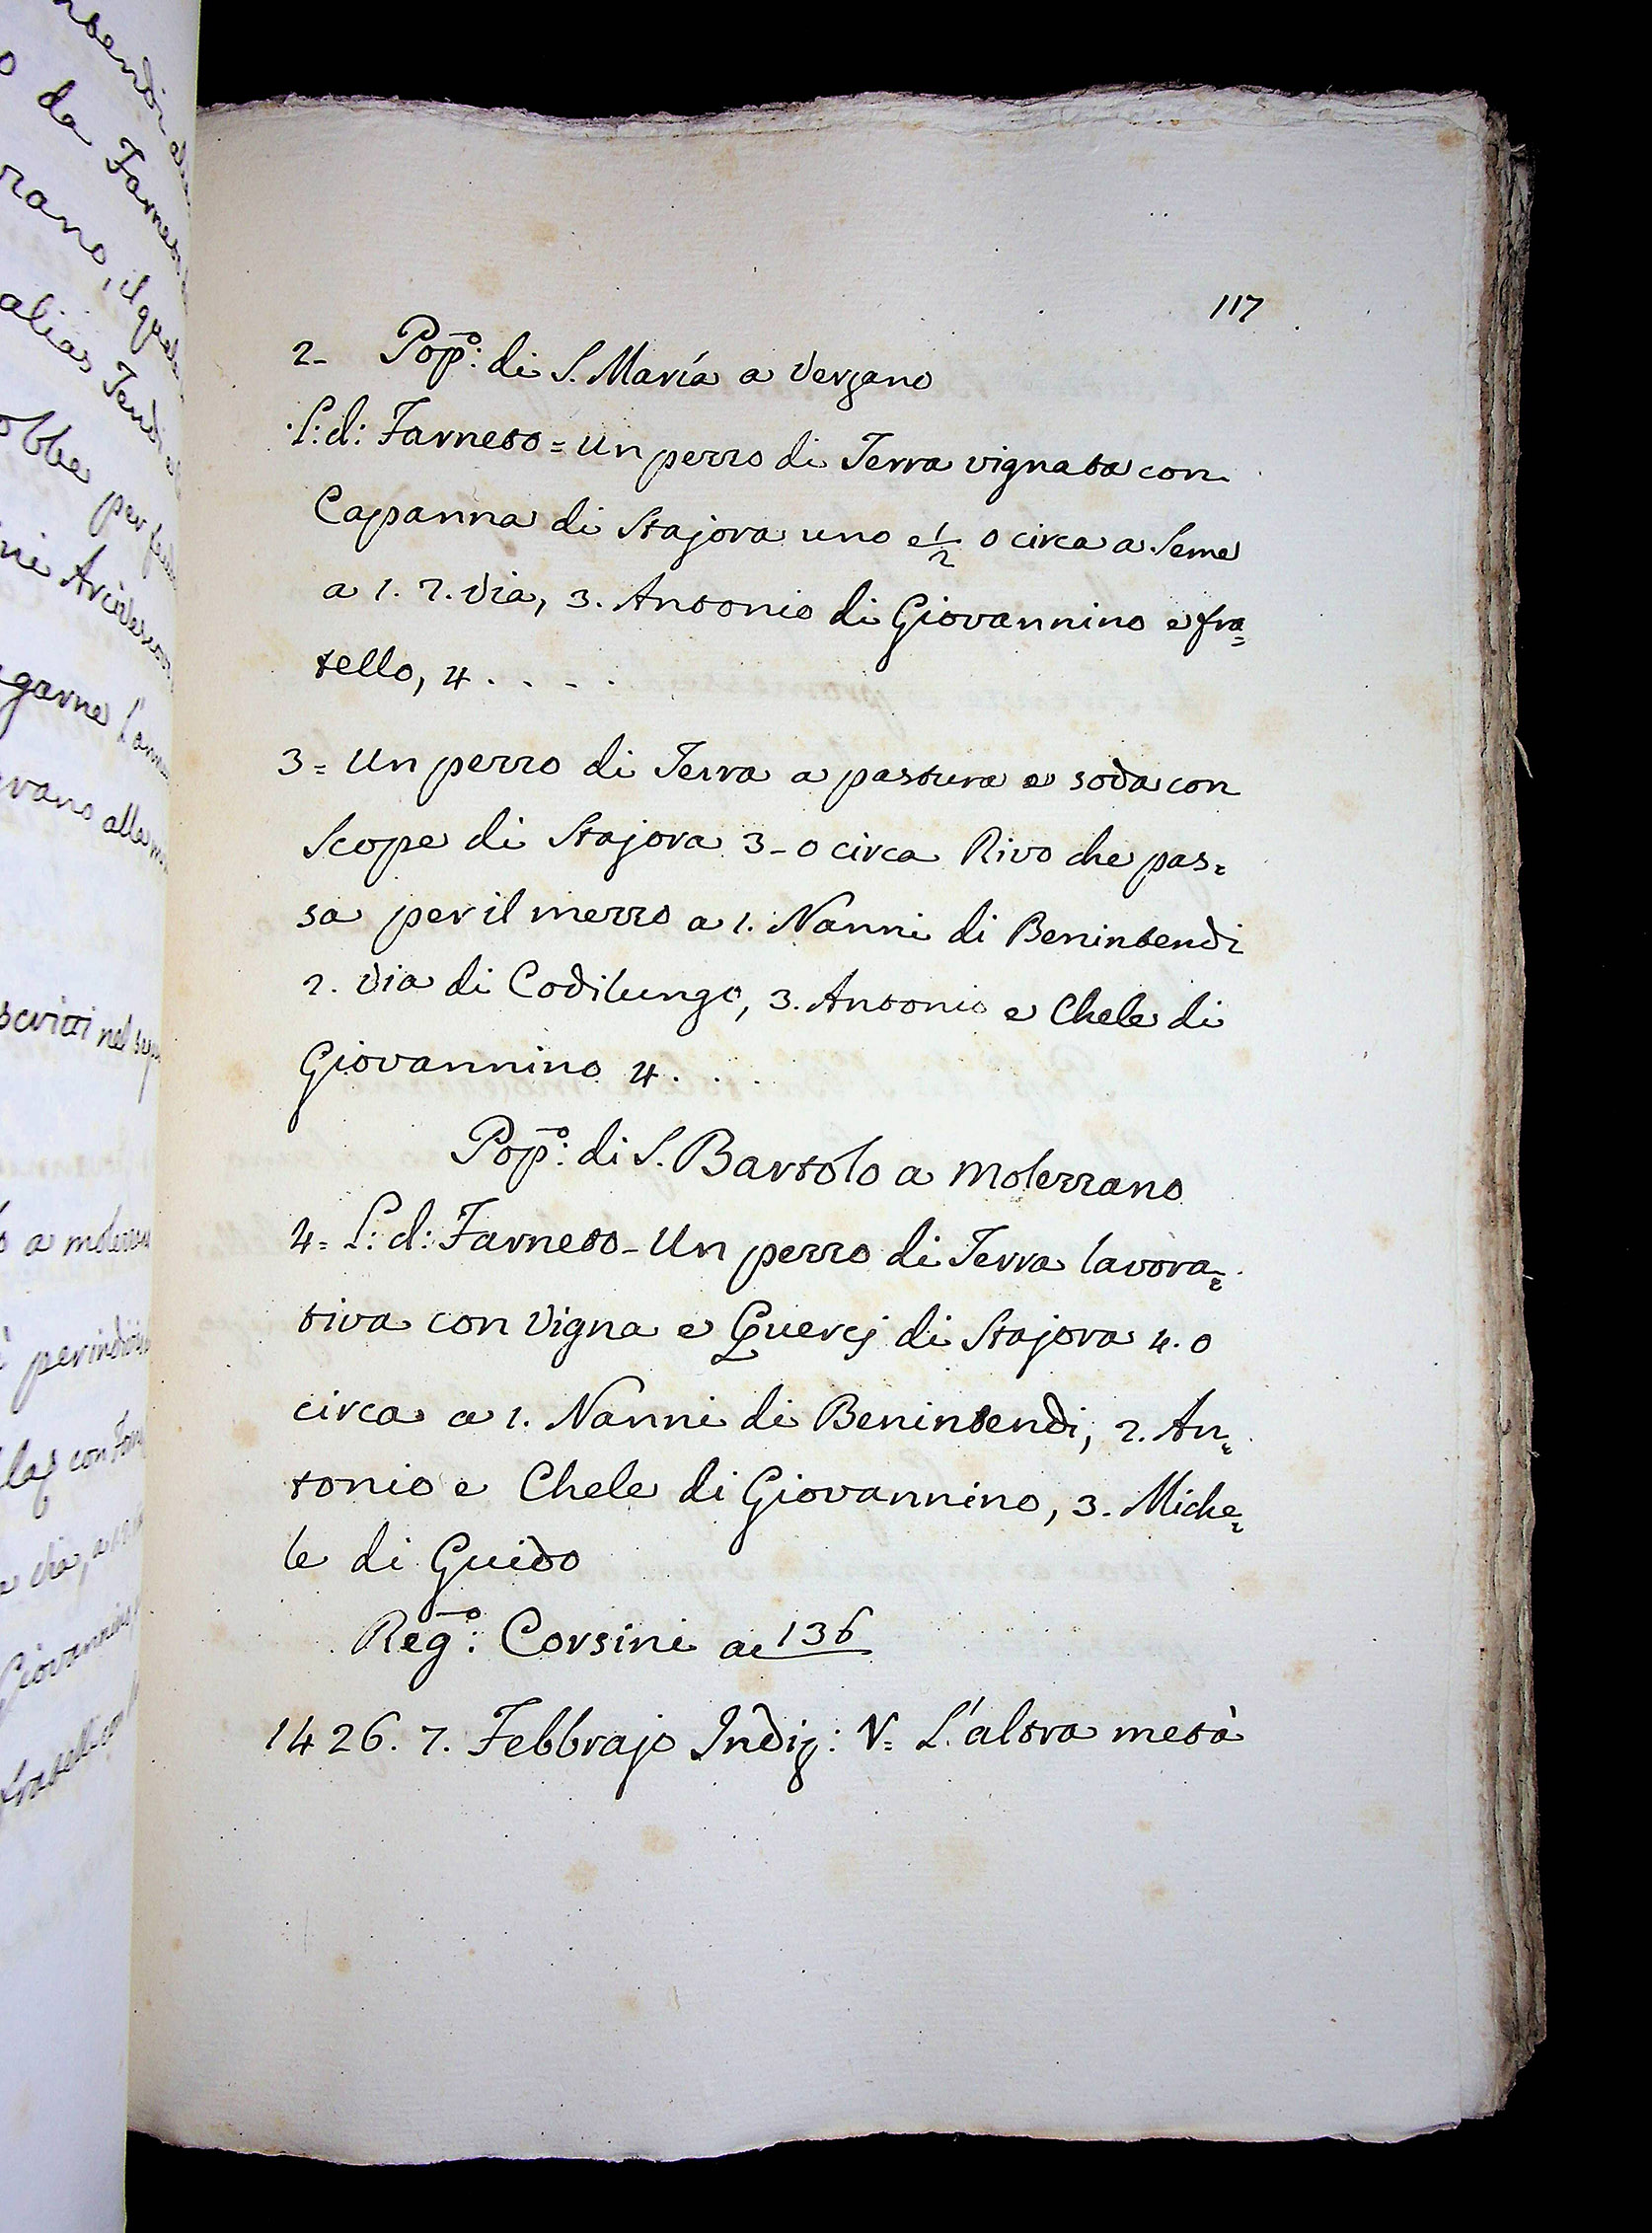 117
2- Pop̄o: di S. Maria a Vezzano
L: d: Farneto = Un pezzo di Terra vignata con
Capanna di Stajora uno e 1/2 o circa a Seme
a 1. 2. Via, 3. Antonio di Giovannino e fra=
tello, 4 . . . .
3= Un pezzo di Terra a pastura e soda con
Scope di Stajora 3- o circa Rivo che pas=
sa per il mezzo a 1. Nanni di Benintendi
2. Via di Codilungo, 3. Antonio e Chele di
Giovannino 4 . . .
Pop̄o: di S. Bartolo a Molezzano
4= L: d: Farneto - Un pezzo di Terra lavora=
tiva con Vigna e Quercj di Stajora 4. o
circa a 1. Nanni di Benintendi, 2. An=
tonio e Chele di Giovannino, 3. Miche=
le di Guido
Reg̅o: Corsini ac 136
1426. 7. Febbrajo Indiz: V= L'altra metà